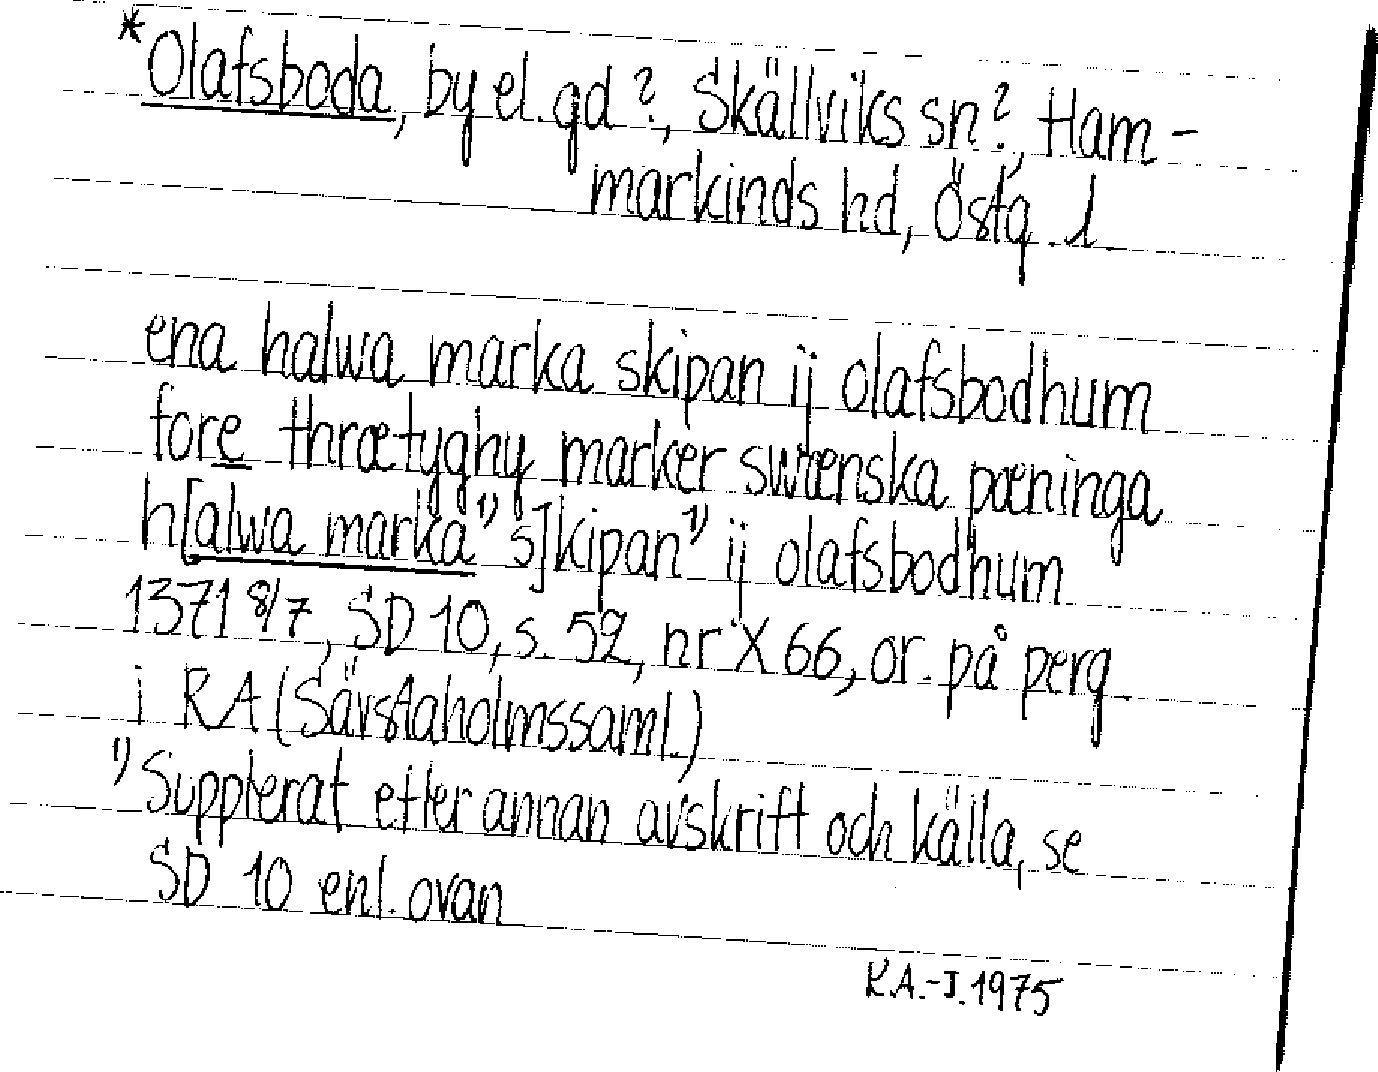 *Olafsboda, by el. gd?, Skällviks sn?, Ham-
markinds hd, Östg. l.
ena halwa marka skipan ij olafsbodhum
fore thrætyghy marker swænska pæninga
h[alwa marka¹⁾ s]kipan¹⁾ ij olafsbodhum
1371 8/7, SD 10, s. 52, nr X 66, or. på perg.
i RA (Sävstaholmssaml.)
¹⁾ Supplerat efter annan avskrift och källa, se
SD 10 enl. ovan
R.A.-J. 1975